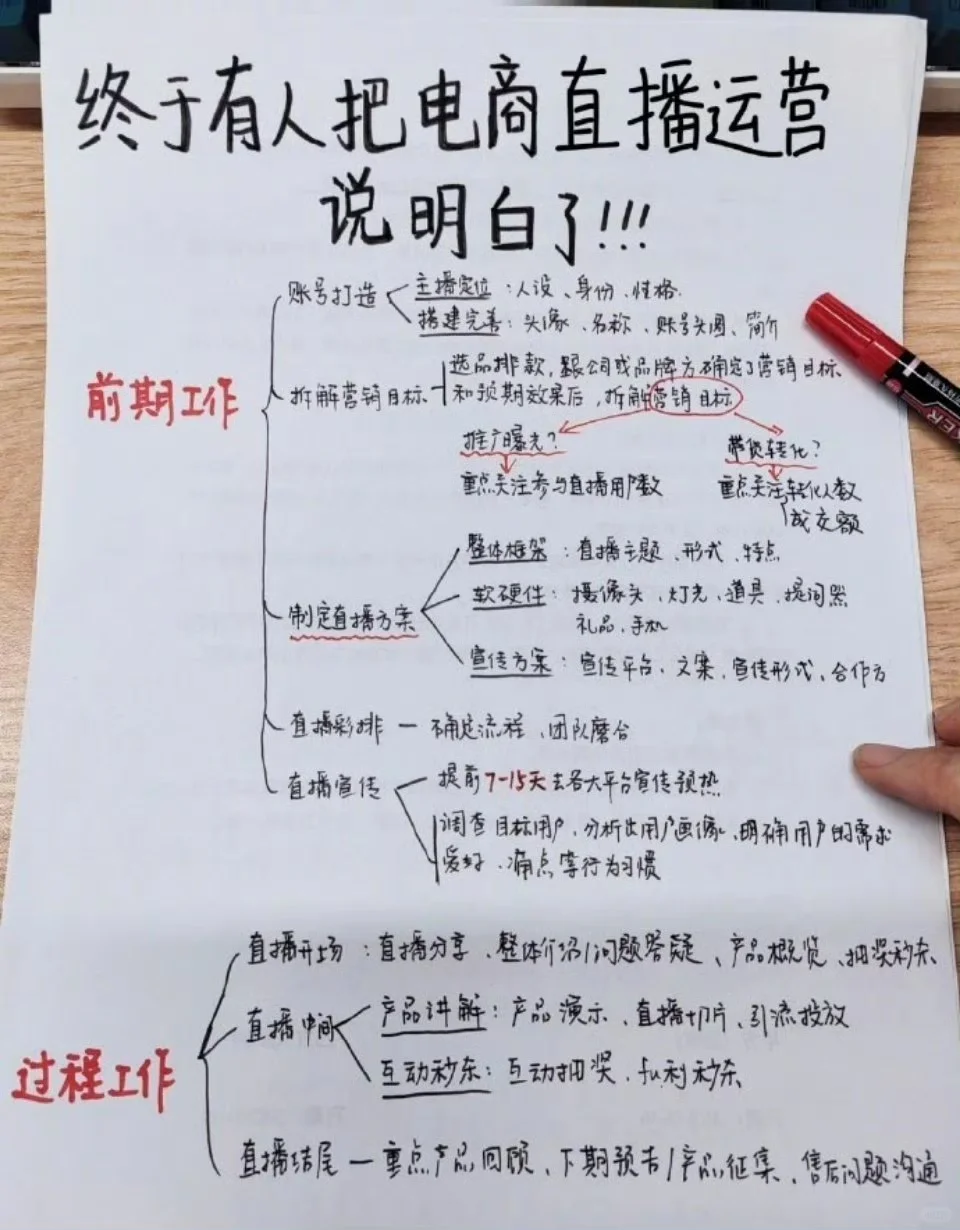 终于有人把电商直播运营
说明白了!!!
前期工作
账号打造
主播定位：人设、身份、性格.
搭建完善：头像、名称、账号头图、简介
拆解营销目标
选品排款,跟公司或品牌方确定了营销目标
和预期效果后,拆解营销目标
推广曝光?
重点关注参与直播用户数
带货转化?
重点关注转化人数
成交额
制定直播方案
整体框架：直播主题、形式、特点
软硬件：摄像头、灯光、道具、提词器
礼品、手机
宣传方案：宣传平台、文案、宣传形式、合作方
直播彩排 — 确定流程、团队磨合
直播宣传
提前7-15天去各大平台宣传预热
调查目标用户,分析出用户画像,明确用户的需求
爱好、痛点等行为习惯
过程工作
直播开场：直播分享、整体介绍/问题答疑、产品概览、抽奖秒杀
直播中间
产品讲解：产品演示、直播切片、引流投放
互动秒杀：互动抽奖、fu利秒杀
直播结尾 — 重点产品回顾、下期预告/产品征集、售后问题沟通
KER